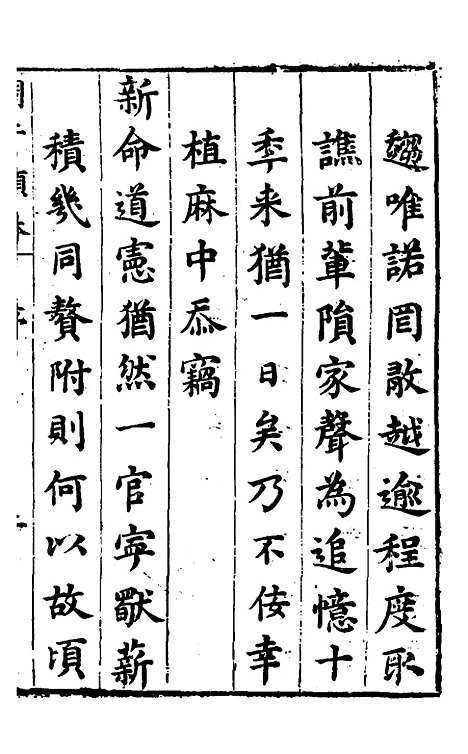 唯諾罔敢越逾程度取
譙前輩隕家聲為追憶十
秊来猶一日矣乃不佞幸
植麻中忝竊
新命道憲猶然一官寧厭薪
積幾同贅附則何以故頃